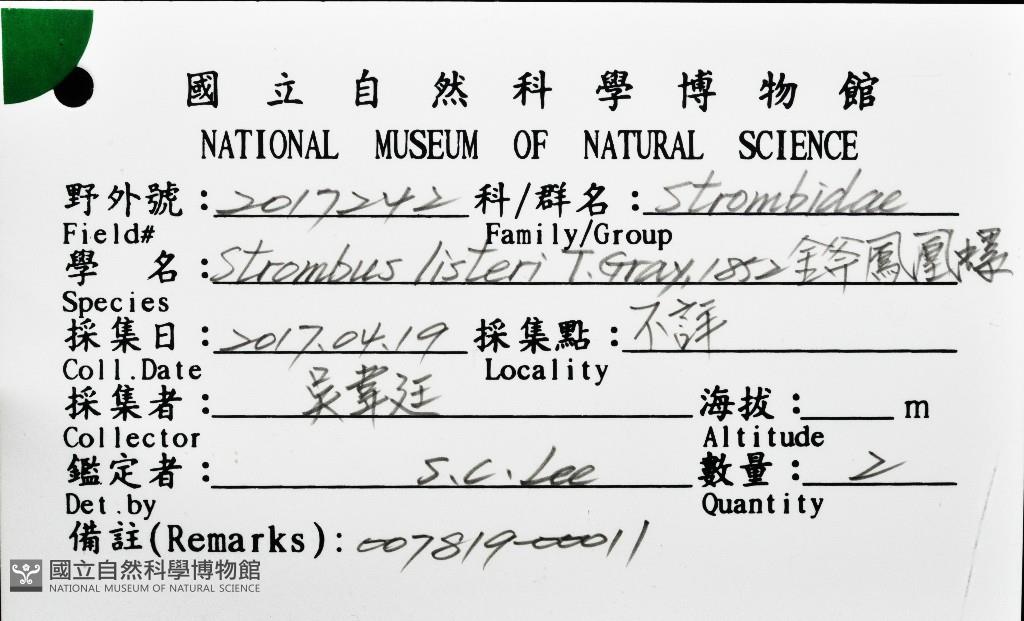 國立自然科學博物館
NATIONAL MUSEUM OF NATURAL SCIENCE
野外號：2017242 科/群名：Strombidae
Field# Family/Group
學 名：Strombus listeri T.Gray,1852 鉾鳳凰螺
Species
採集日：2017.04.19 採集點：不詳
Coll.Date Locality
採集者：吳韋廷 海拔： m
Collector Altitude
鑑定者：S.C.Lee 數量：2
Det.by Quantity
備註(Remarks):007819-00011
國立自然科學博物館
NATIONAL MUSEUM OF NATURAL SCIENCE